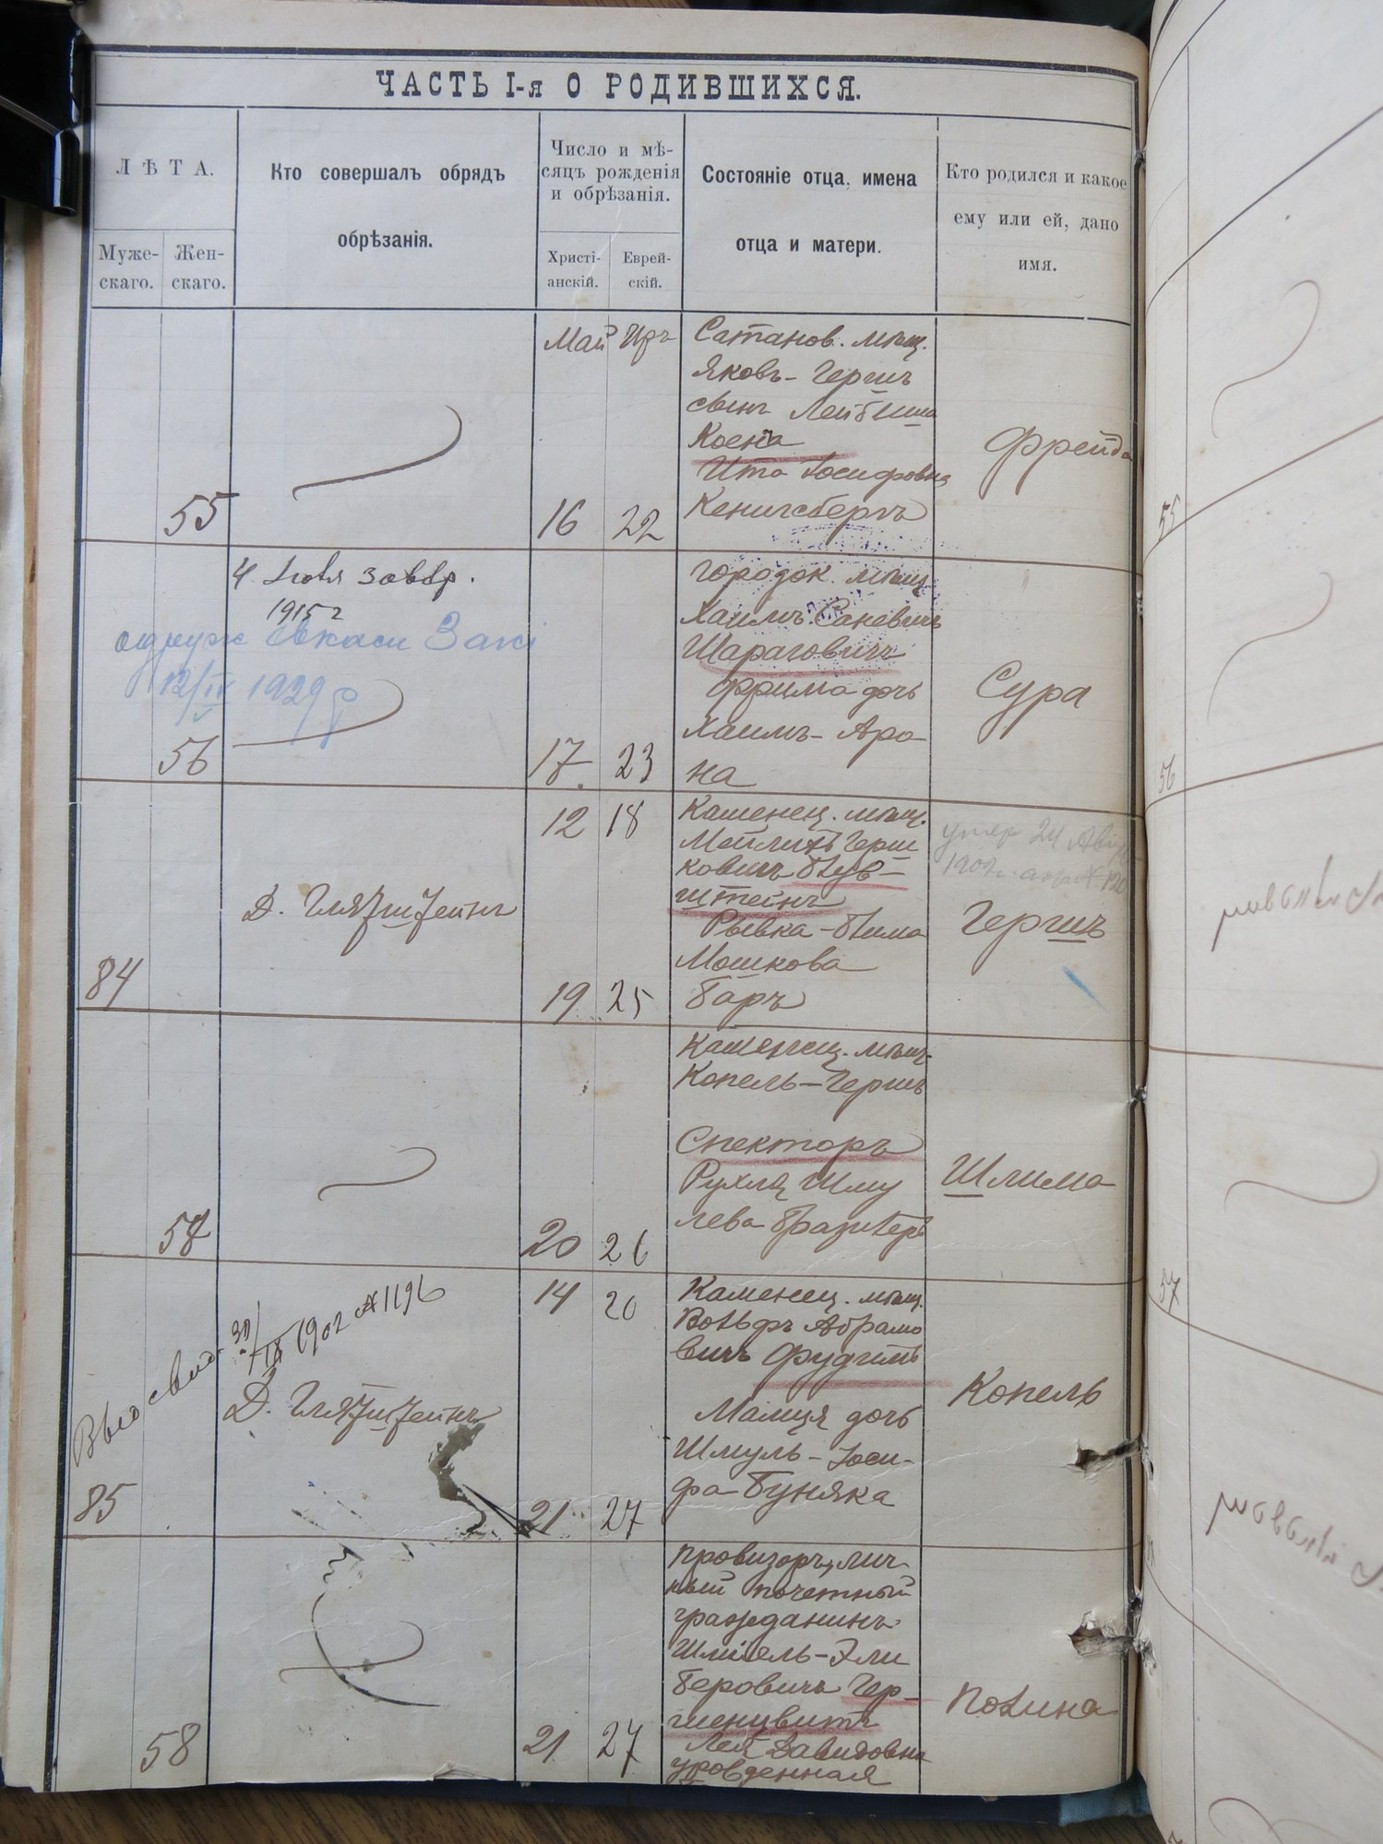 ЧАСТЬ I-я О РОДИВШИХСЯ.
ЛѢТА.
Муже-
скаго.
Жен-
скаго.
Кто совершалъ обрядъ
обрѣзанія.
Число и мѣ-
сяцъ рожденія
и обрѣзанія.
Христі-
анскій.
Еврей-
скій.
Состояніе отца, имена
отца и матери.
Кто родился и какое
ему или ей, дано
имя.
55
Май Иръ
16 22
Сатанов. мѣщ.
Яковъ-Гершъ
сынъ Лейбиша
Коена
Ита Іосифовна
Кенигсбергъ
Фрейда
4 завѣр.
1915 г
12/IV 1929 р
56
17 23
Городок. мѣщ.
Хаимъ Саневичъ
Шараговичъ
Фрима дочь
Хаимъ-Аро-
на
Сура
84
Д. Гляйштейнъ
12 18
19 25
Каменец. мѣщ.
Мейлихъ Герш
ковичъ
штейнъ
Рывка-Бима
Мошкова
Баръ
умер 24 Авг
Гершъ
57
20 26
Каменец. мѣщ.
Копель-Гершъ
Спекторъ
Рухля Шму
лева
Шлима
Выд свид. 30/IX 1902 № 1196
85
Д. Гляйштейнъ
14 20
21 27
Каменец. мѣщ.
Вольфъ Абрамо
вичъ Фудимъ
Малця дочь
Шмуль-Іоси-
фа Буняка
Копель
58
21 27
Провизоръ, лич-
ный почетный
гражданинъ
Шміель-Эли
Беровичъ Гер-
шенцвитъ
Лея Давидовна
урожденная
Полина
55
56
57